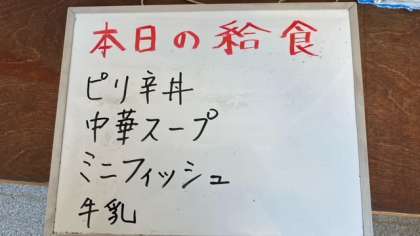 本日の給食
ピリ辛丼
中華スープ
ミニフィッシュ
牛乳